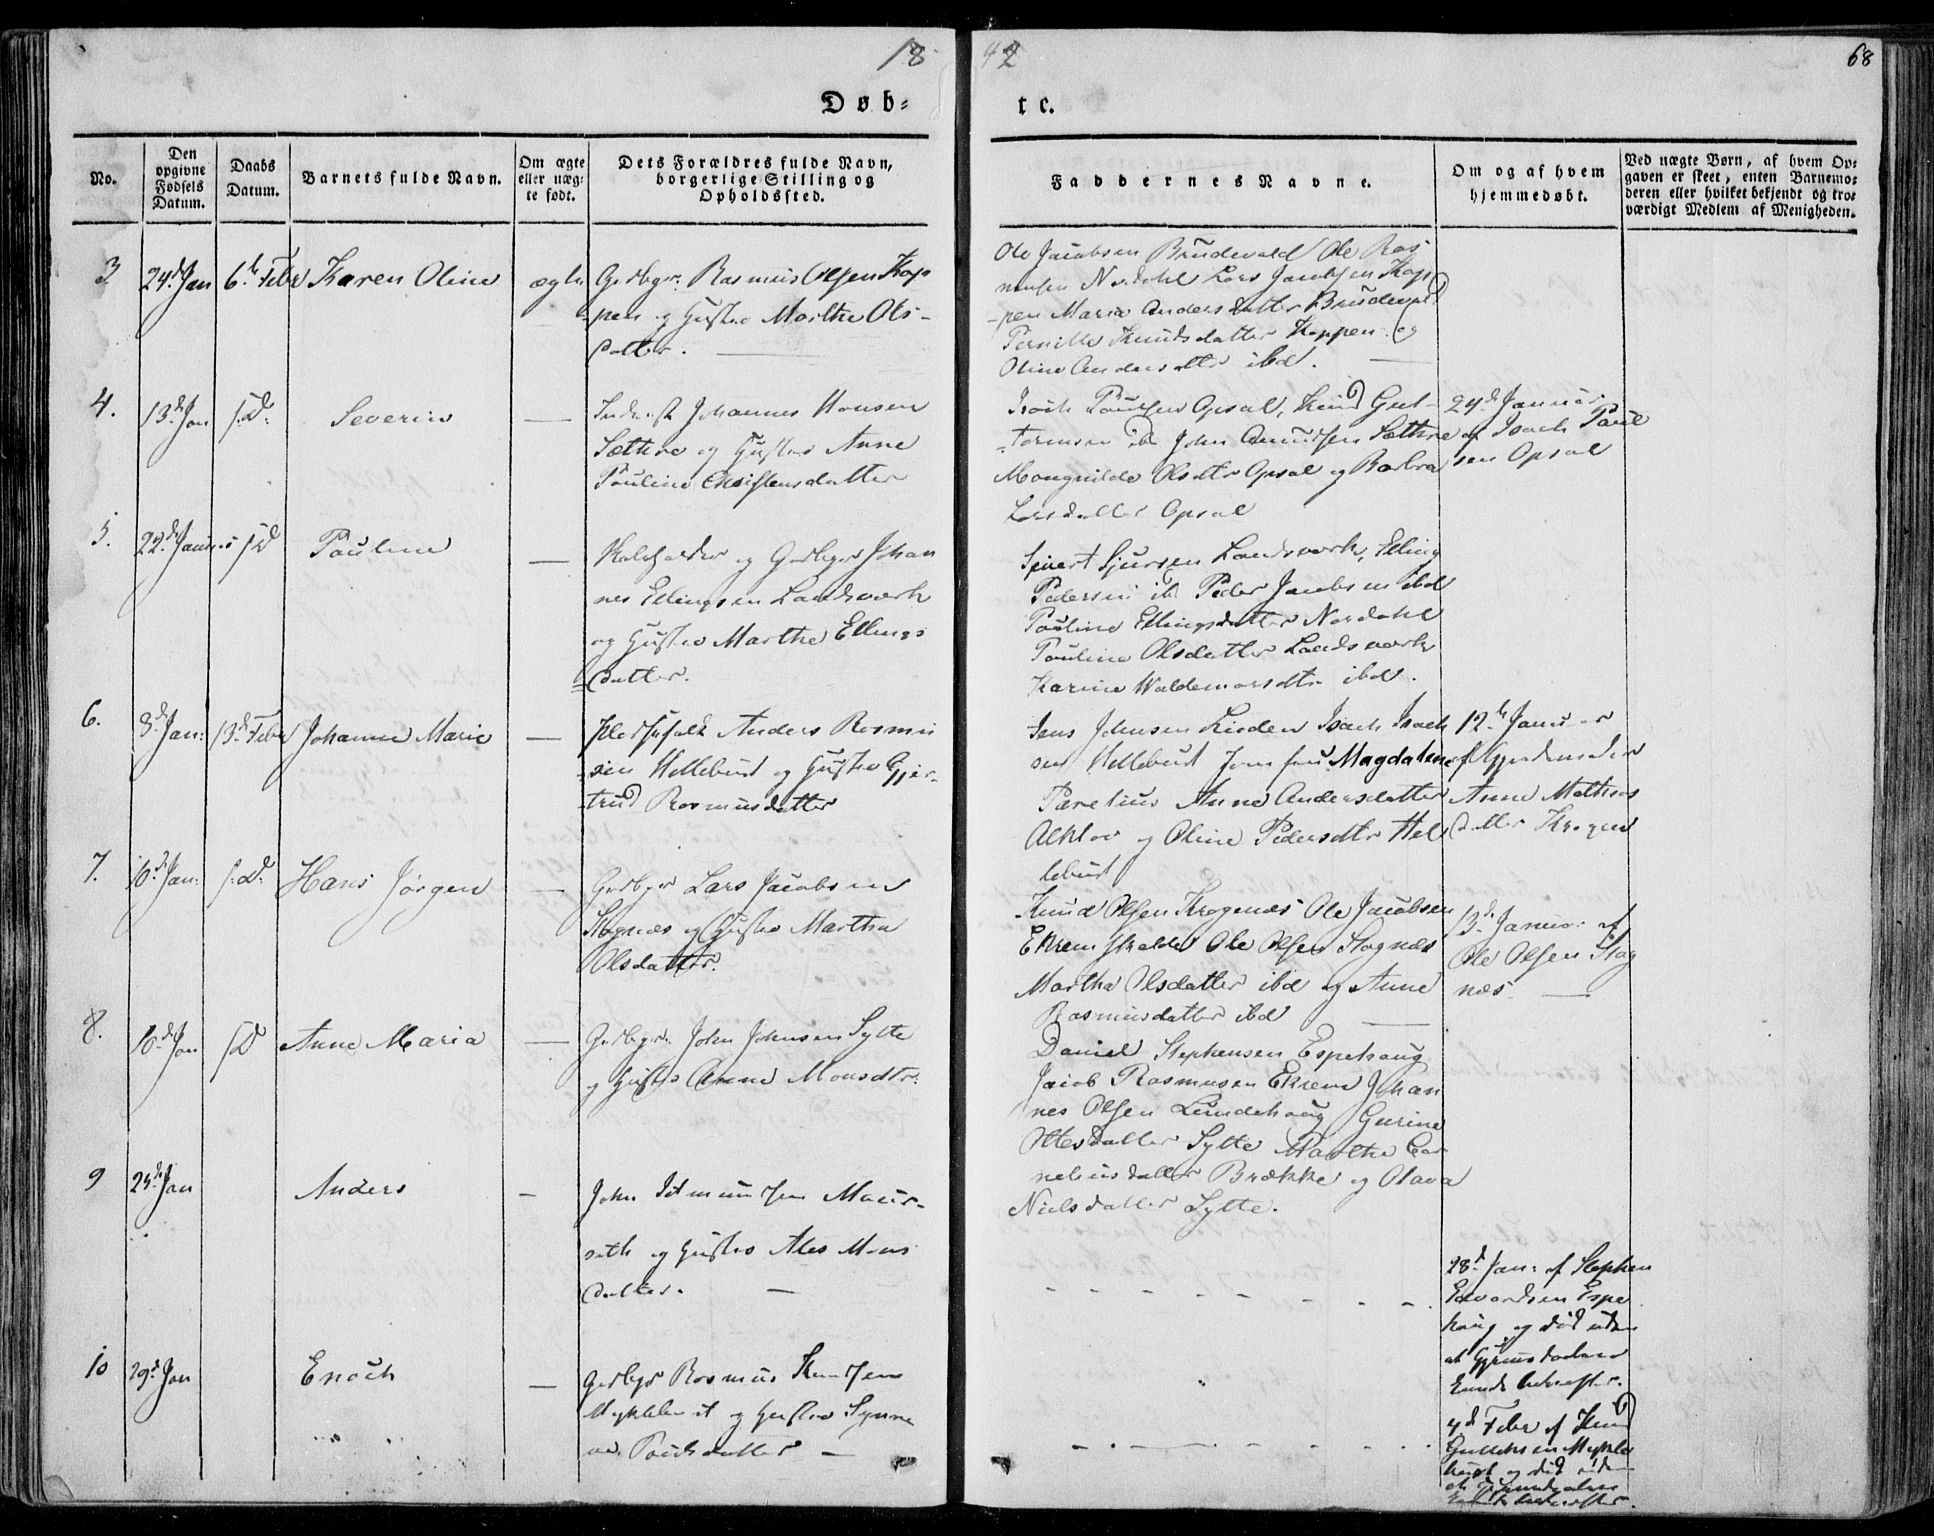 18
42
68
Døb-
te.
No.
Den opgivne Fødsels Datum.
Daabs Datum.
Barnets fulde Navn.
Om ægte eller uægte født.
Dets Forældres fulde Navn, borgerlige Stilling og Opholdssted.
Faddernes Navne.
Om og af hvem hjemmedøbt.
Ved uægte Børn, af hvem Opgaven er skeet, enten Barnemoderen eller hvilket bekjendt og troværdigt Medlem af Menigheden.
3
24d Jan
6te Febr
Karen Oline
ægte
Gdbgr: Rasmus Olsen Kop
pen og Hustro Marthe Ols-
datter.
Ole Jacobsen Brudevold Ole Ras
musen Nordahl Lars Jacobsen Kop
pen Maria Anders datter Brudevold
Pernille Knudsdatter Koppen og
Oline Andersdtr ibd.
4.
13d Jan
s.D.
Severin
—
Inderst Johannes Hansen
Sæthre og Hustro Anne
Pauline Christensdatter
Isach Paulsen Opsal, Knud Gut-
tormsen ibd John Amundsen Sæthre
Mangnilde Olsdtr Opsal og Barbra
Larsdatter Opsal
24d Januar
af Isach Paul
sen Opsal
5.
22d Januar
s.D
Pauline
—
og Gdbgr Johan
nes Ellingsen Landsværk
og Hustro Marthe Ellings
datter.
Sivert Sjursen Landsværk, Elling
Pedersen ibd Peder Jacobsen ibd
Pauline Ellingsdatter Nordahl
Pauline Olsdatter Landsværk
Karine Waldemarsdtr ibd.
6.
8d Jan:
13d Febr
Johanne Marie
—
Pladsfolk Anders Rasmu
sen Hellebust og Hustro Gjer-
trud Rasmusdatter
Jens Johnsen Linden Isach Isach
sen Hellebust Jomfru Magdalene
Parelius Anne Andersdatter
Alklov og Oline Pedersdtr Hel
lebust
12te Januar
af Gjordemoder
Anne Mathias
datter Krogen
7.
10d Jan:
s.D.
Hans Jørgen
—
Gdbgr Lars Jacobsen
Stognæs og Hustro Martha
Olsdatter.
Knud Olsen Krogenæs Ole Jacobsen
Ekrem Ole Olsen Stognæs
Martha Olsdatter ibd og Anne
Rasmusdatter ibd
13d Januar af
Ole Olsen Stog
næs
8.
10d Jan
s.D
Anne Maria
—
Gdbgr. John Johnsen Sylte
og Hustro Anne Monsdtr:
Daniel Stephensen Espehaug
Jacob Rasmusen Ekrem Johan
nes Olsen Lundehaug Gurine
Ottesdatter Sylte Martha Cor
neliusdatter Brække og Olava
Nielsdatter Sylte.
9
25d Jan
Anders
—
John Maur-
seth og Hustro Ales Mons
datter.
28d Jan: af Stephen
Edvardsen Espe
haug og død uden
at
kunde bekræftes.
10
29d Jan
Enoch
—
Gdbgr Rasmus Knudsen
Myklebust og Hustro Synne
ve datter
4d Febr af Knud
Mykle
bust og død uden
at
bekræftes.